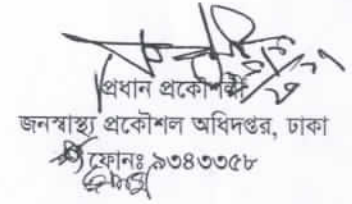 প্রধান প্রকৌশলী
জনস্বাস্থ্য প্রকৌশল অধিদপ্তর, ঢাকা
ফোনঃ ৯৩৪৩৩৫৮